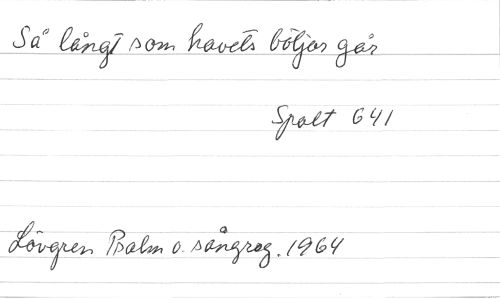 Så långt som havets böljor går
Spalt 641
Lövgren Psalm o. sångreg. 1964